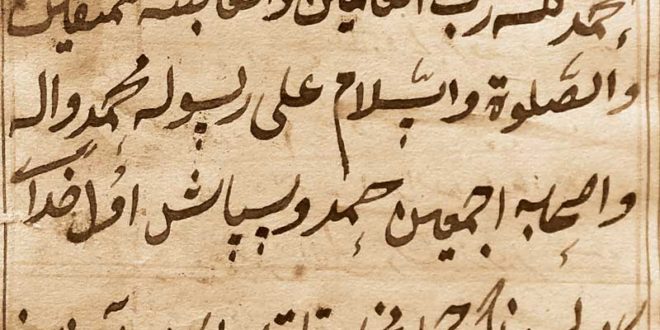 الحمد لله رب العالمين والعاقبة للمتقين
والصَّلوة والسَّلام على رسوله محمد واله
واصحابه اجمعين حمد وسپاس اول خدا